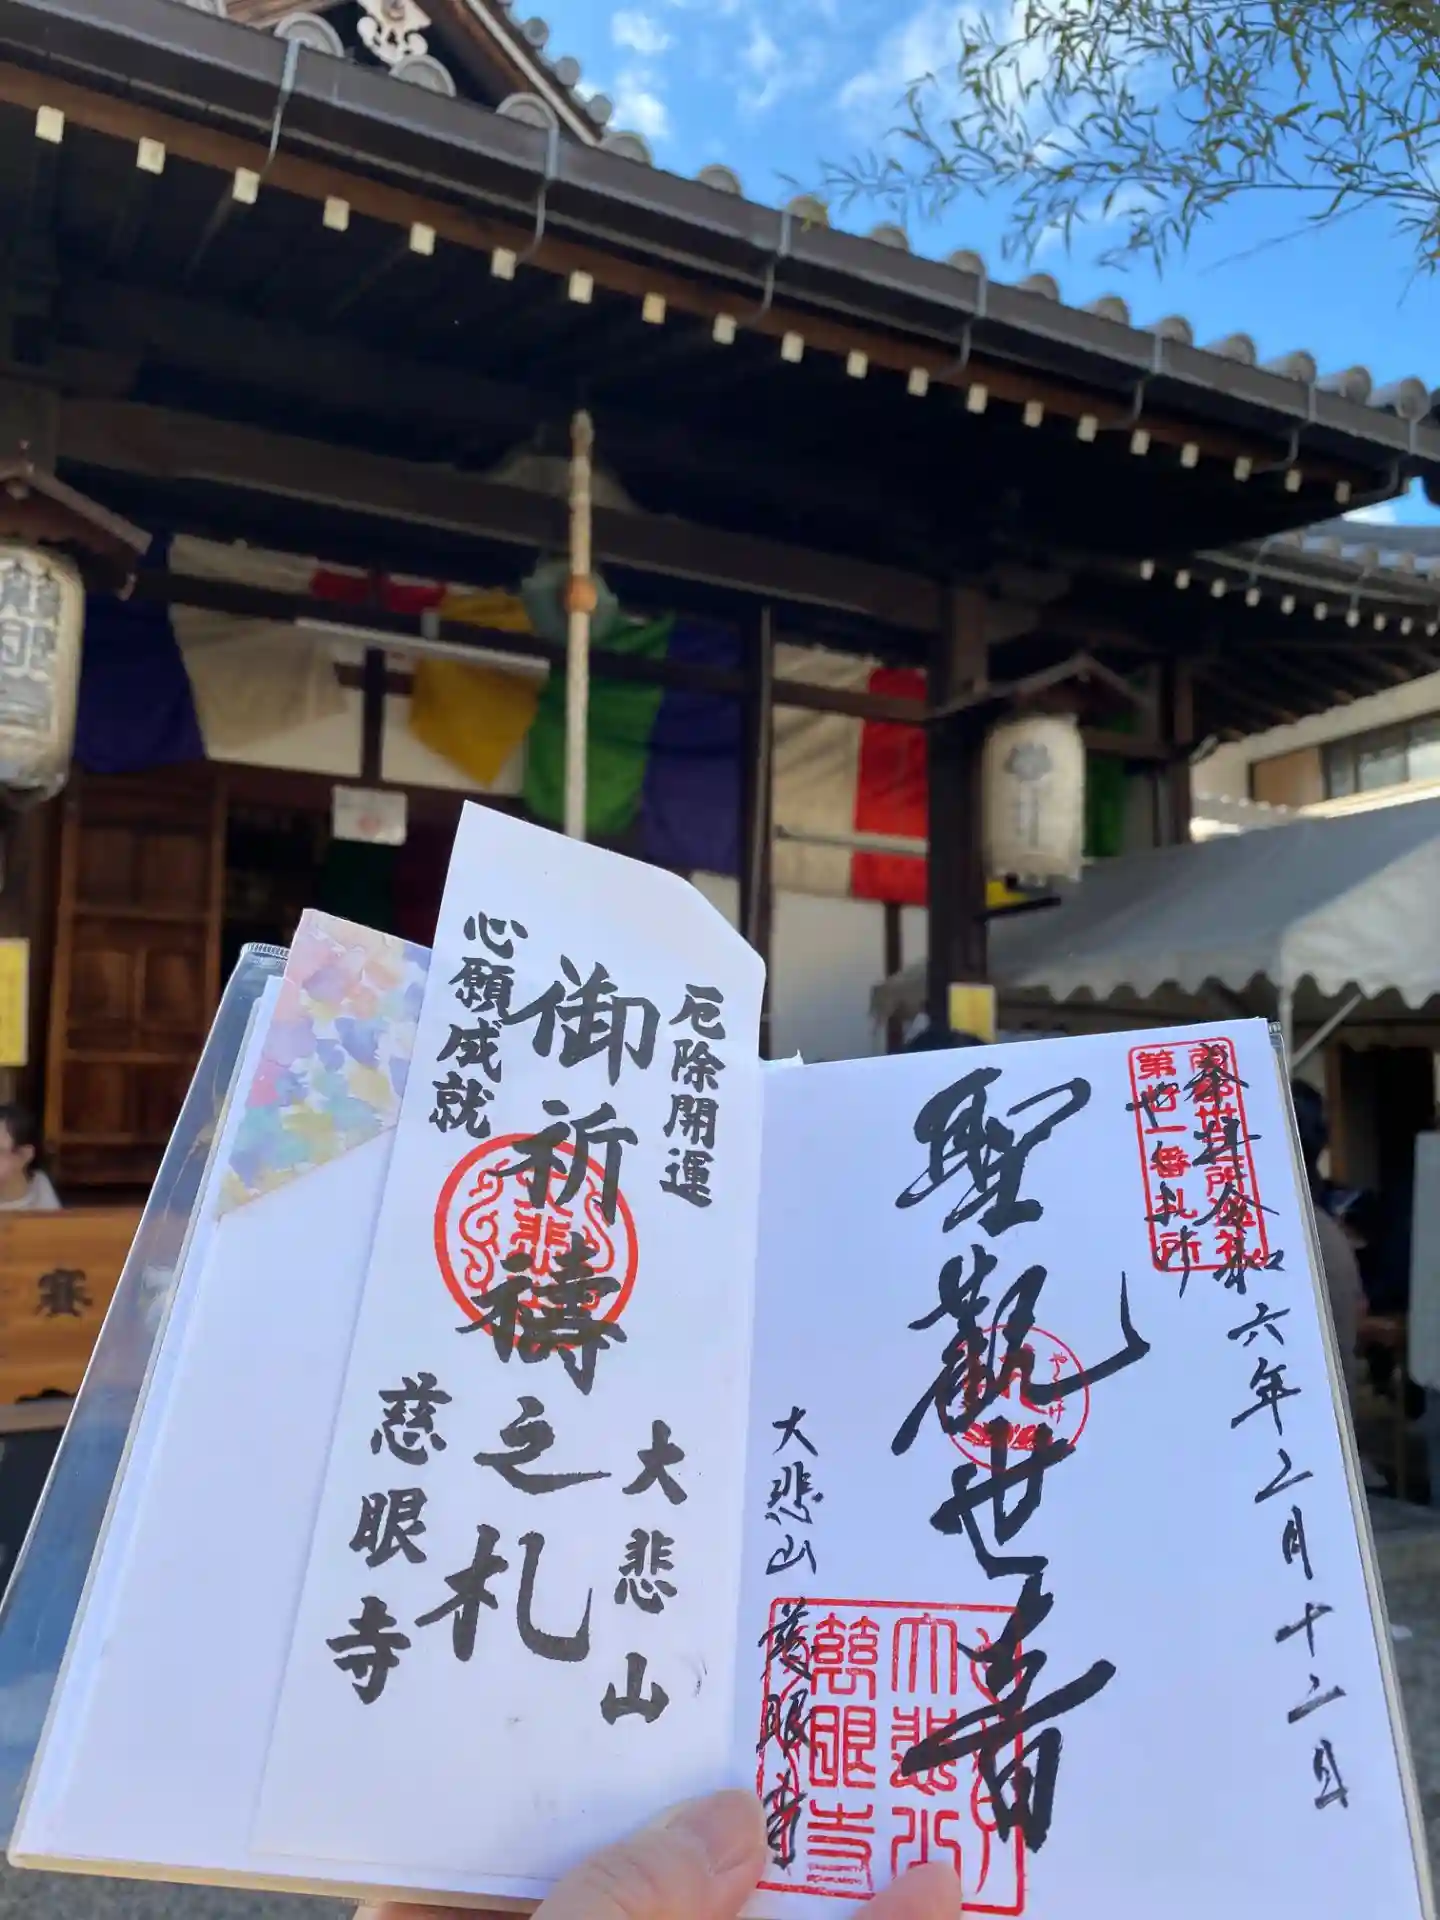 厄除開運
御祈禱之札
心願成就
大悲山
慈眼寺
奉拝
令和六年二月十二日
第廿一番札所
聖觀世音
やくよけ
大悲山
慈眼寺
大悲山
慈眼寺